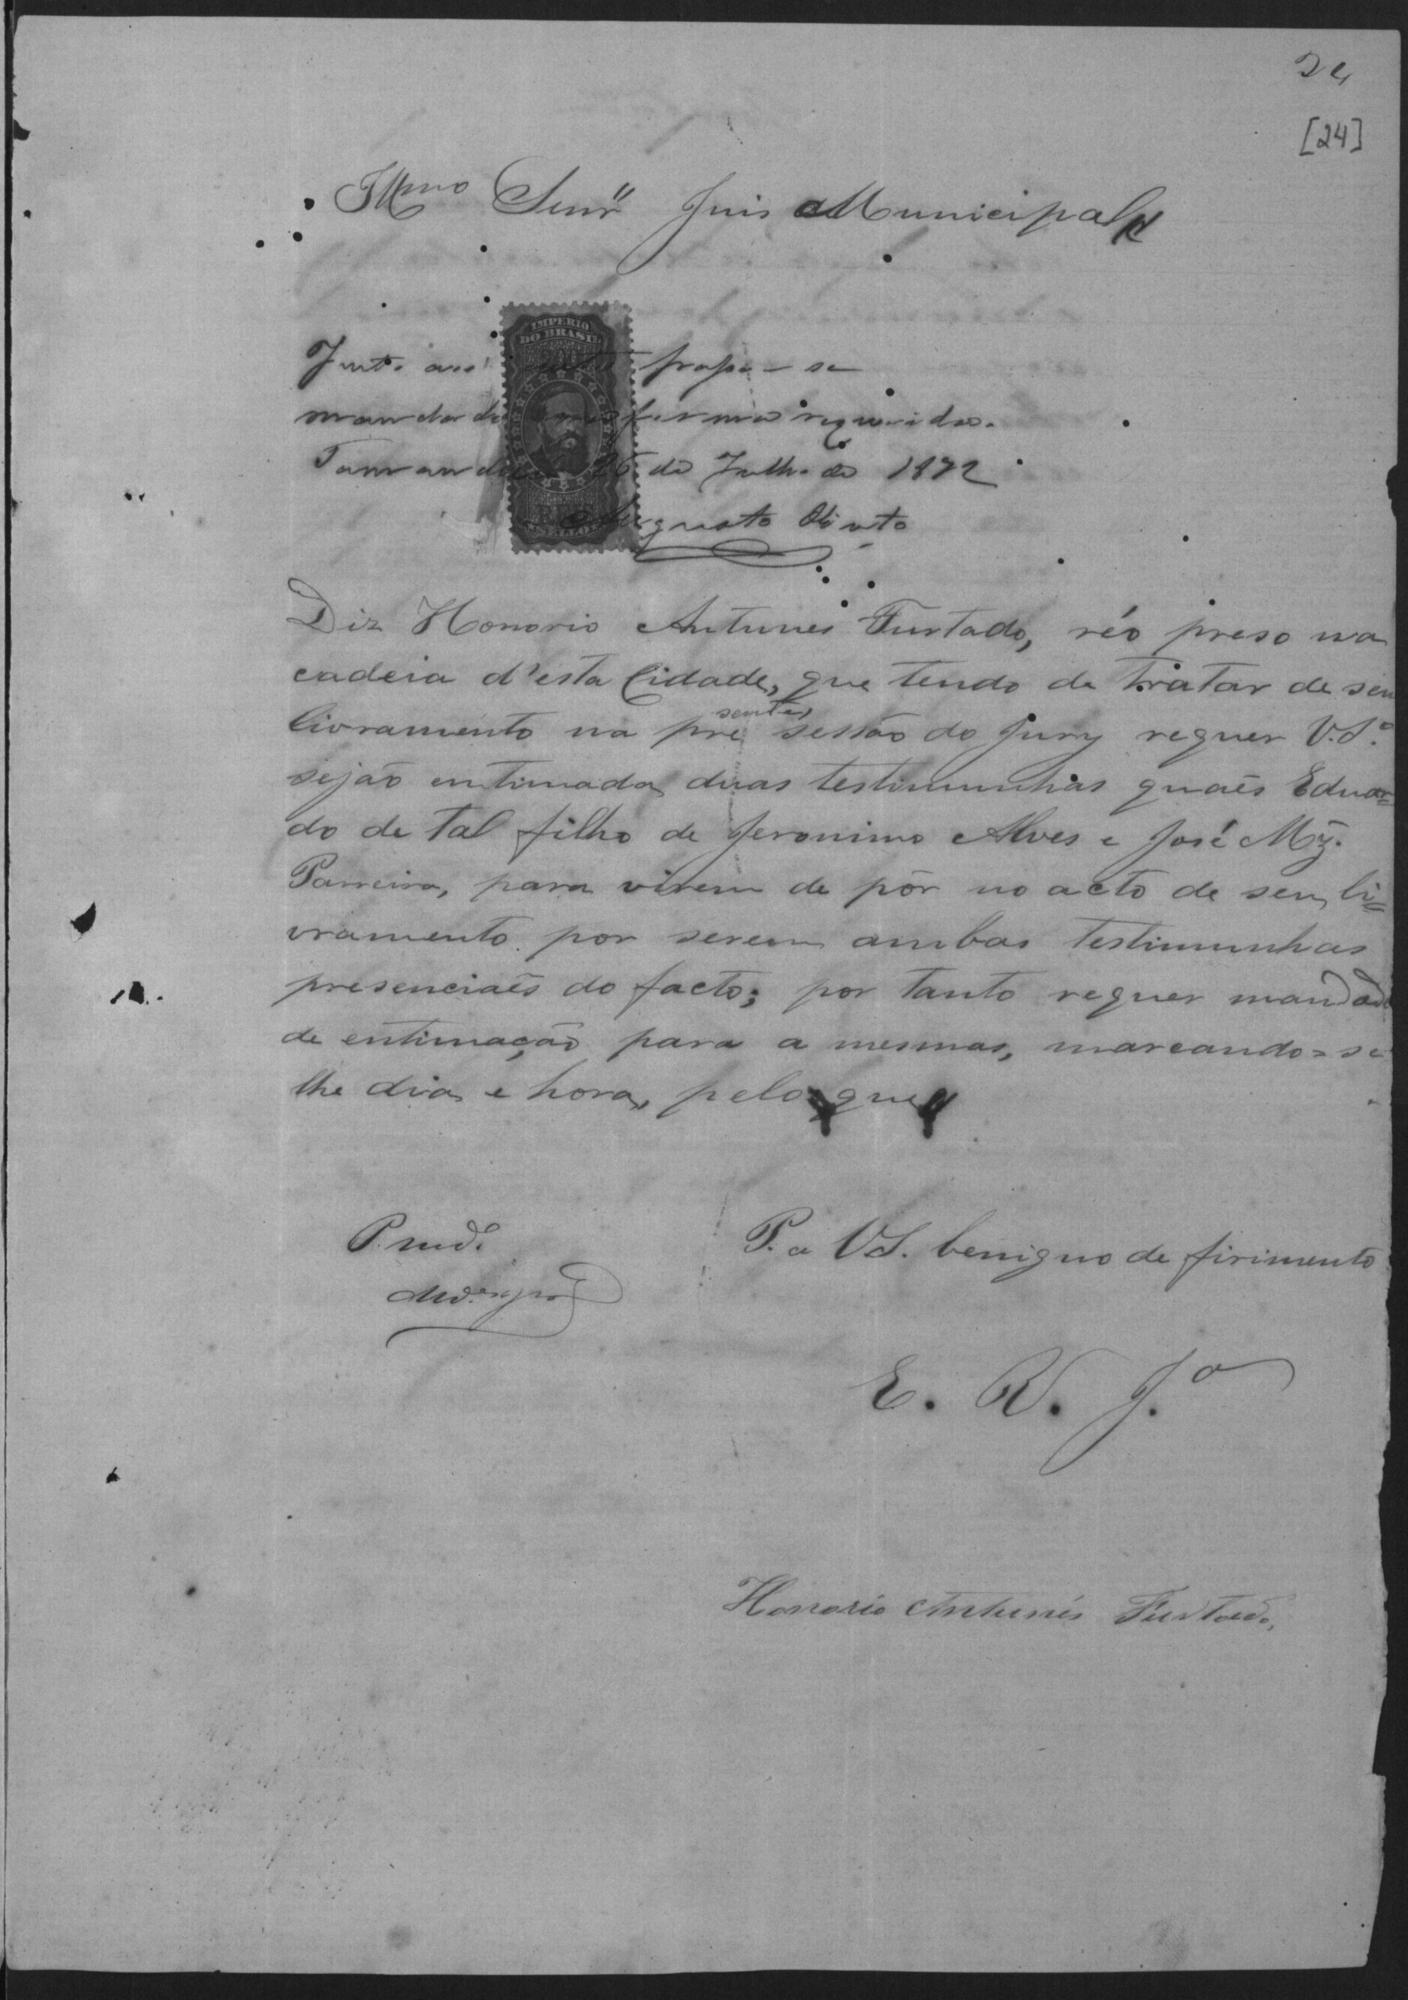 24
[24]
Illmo Senr Juis Municipal
IMPERIO
DO BRASIL
Junto aos autos passe-se
mandado na forma requerida.
26 de Julho de 1872
Augusto
Diz Honorio Antunes Furtado, réo preso na
cadeia d'esta Cidade, que tendo de tratar de seu
livramento na presente, sessão do Jury requer V.S.ª
sejão entimada duas testimunhas quaes Eduar=
do de tal filho de Jeronimo Alves e José Mz.
Parreira, para virem de pôr no acto de seu li=
vramento por serem ambas testimunhas
presenciaes do facto; por tanto requer mandado
de entimação para a mesmas, marcando=se
lhe dia e hora, pelo que
P. a V.S. benigno de firimento
E. R. J.ª
Honorio Antunes Furtado,